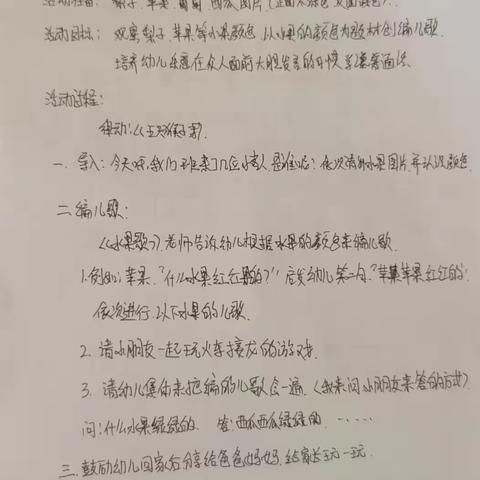 活动准备：梨子、苹果、葡萄、西瓜图片（正面为绿色 反面涂色）
活动目标：观察梨子、苹果等水果颜色，以水果的颜色为题材创编儿歌
培养幼儿乐意在众人面前大胆发言的习惯 学漾普通话
活动过程：
律动：《五指猴子》
一、导入：今天呀，我们班来了几位小客人，是谁呢？依次请出水果图片，并认识颜色
二、编儿歌：
《水果歌》，老师告诉幼儿根据水果的颜色来编儿歌
1.例如：苹果，“什么水果红红的？” 启发幼儿答一句“苹果苹果红红的”
依次进行以下水果的儿歌
2. 请小朋友一起玩火车接龙的游戏
3. 请幼儿集体来把编的儿歌念一遍，（我来问小朋友来答的方式）
问：什么水果绿绿的 答：西瓜西瓜绿绿的 ……
三、鼓励幼儿回家后分享给爸爸妈妈，给家长玩一玩